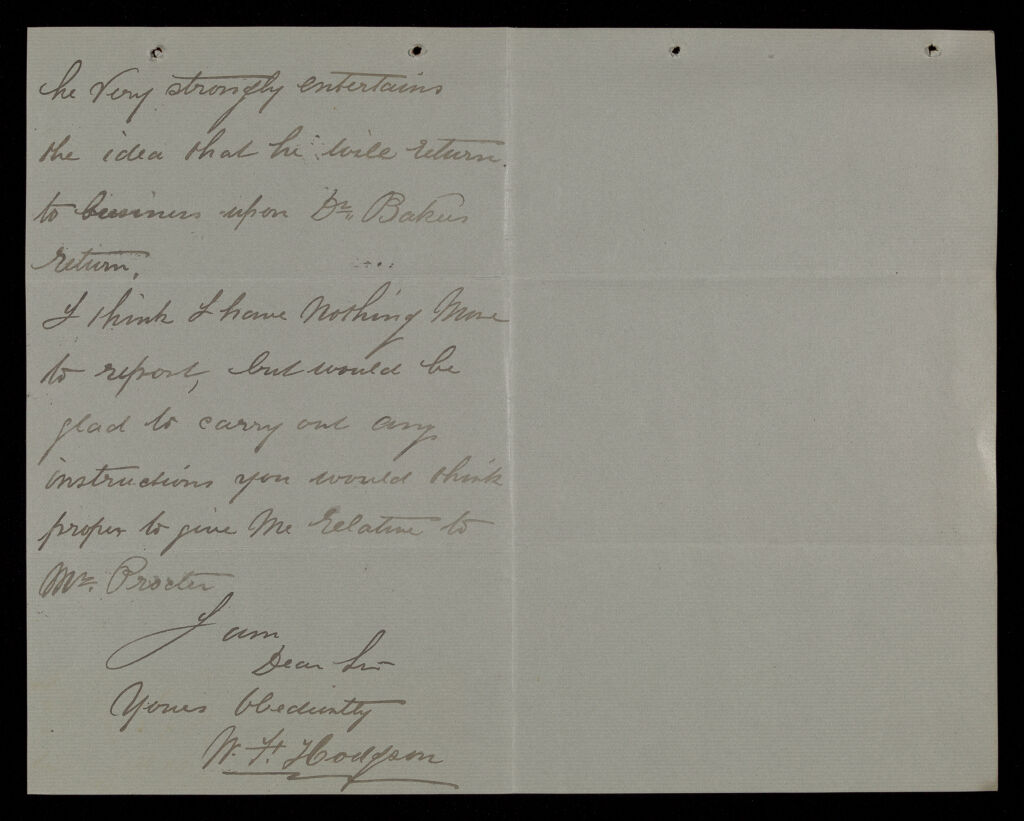 he Very strongly entertains
the idea that he will return
to business upon Dr. Bakers
return.
I think I have Nothing More
to report, but would be
glad to carry out any
instructions you would think
proper to give Me relative to
Mr. Procter
I am
Dear Sir
Yours Obediently
W. F. Hodgson